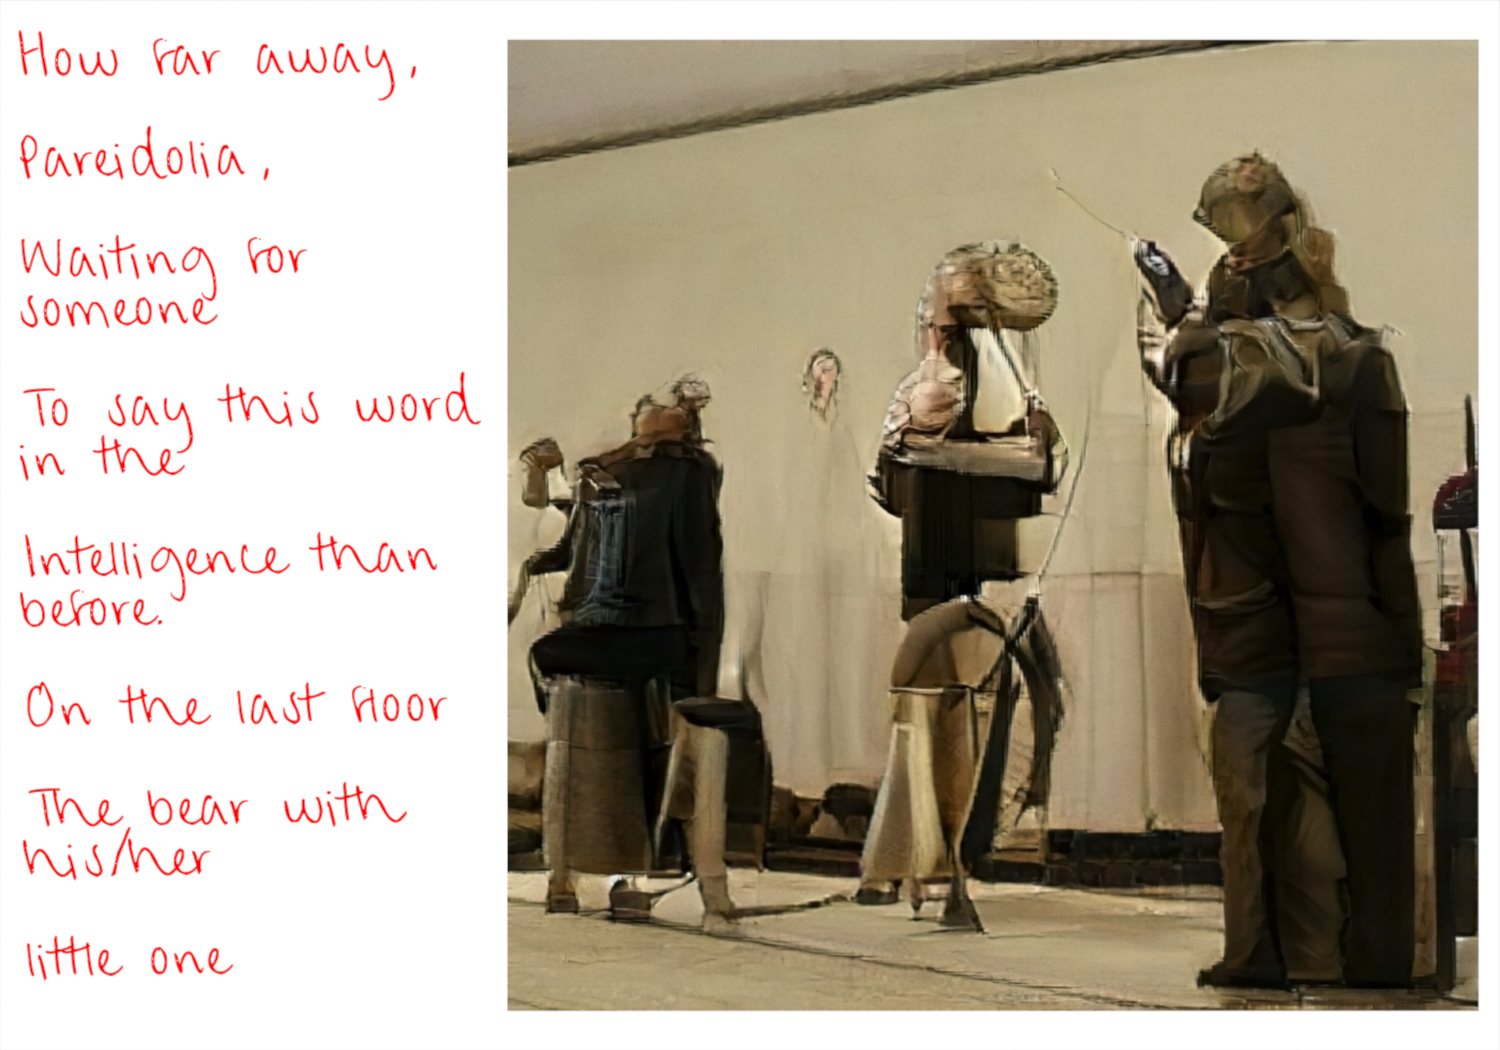 How far away,
Pareidolia,
Waiting for
someone
To say this word
in the
Intelligence than
before.
On the last floor
The bear with
his/her
little one